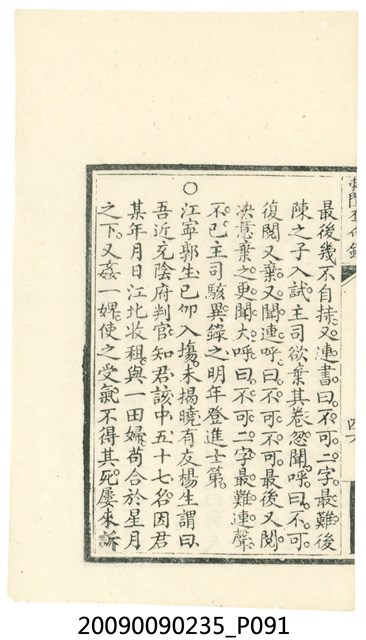 最後幾不自持。又連書曰。不可二字最難。後
陳之子入試。主司欲棄其卷。忽聞呼曰。不可。
復閱又棄。又聞連呼曰。不可不可。最後又閱。
決意棄之。更聞大呼曰。不可二字最難。連聲
不已。主司駭異錄之。明年登進士第。
○江寧郭生。己卯入塲。未揭曉。有友楊生謂曰。
吾近充陰府判官。知君該中五十七名。因君
某年月日江北收租。與一田婦苟合於星月
之下。又姦一婢。使之受氣。不得其死。屢來訴
20090090235_P091